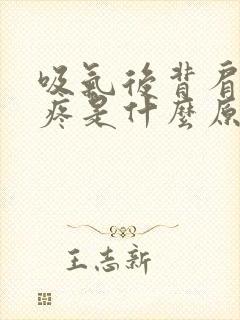 吸氣後背肩
疼是什麼原
王志新